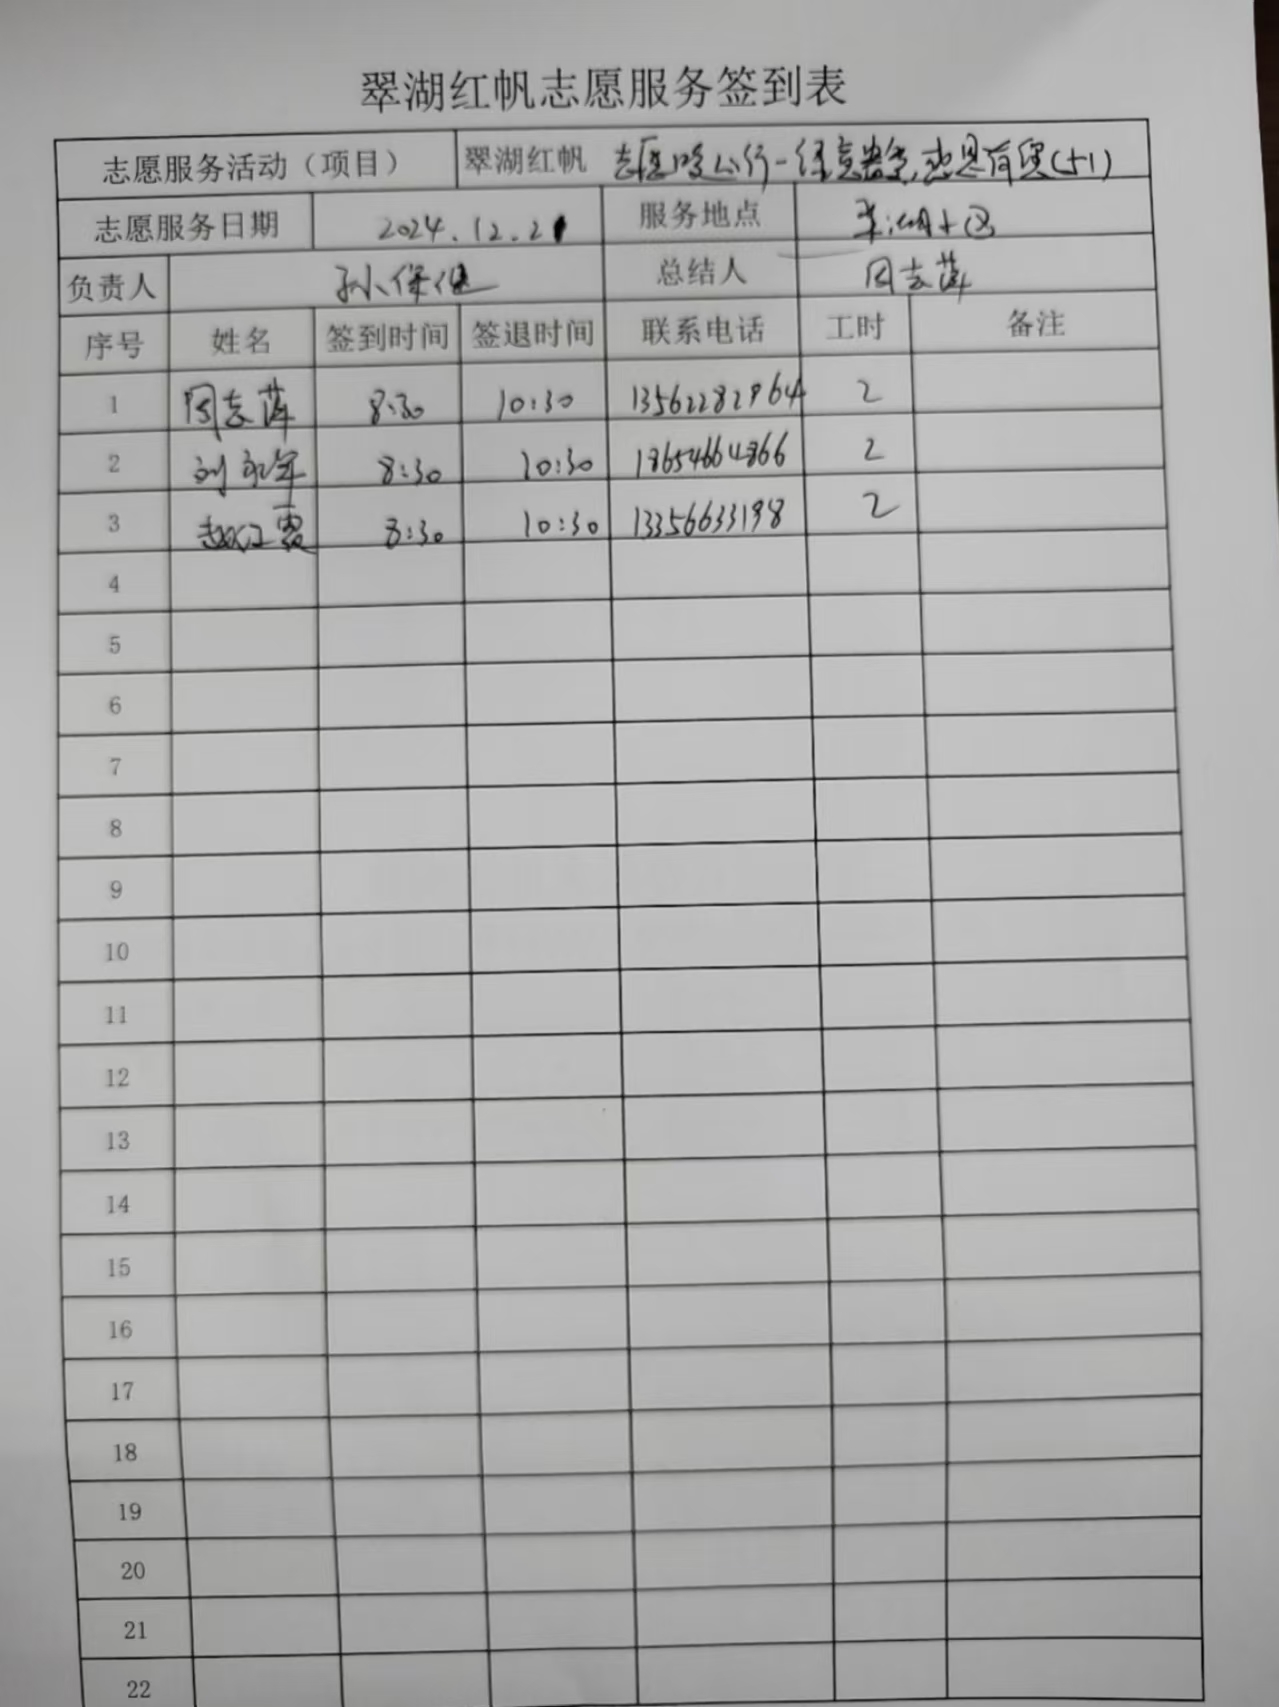 翠湖红帆志愿服务签到表
志愿服务活动（项目） 翠湖红帆 志愿 行一 (51)
志愿服务日期 2024.12.21 服务地点 小区
负责人 孙保 总结人 周志萍
序号 姓名 签到时间 签退时间 联系电话 工时 备注
1 周志萍 8:30 10:30 13562282964 2
2 刘永军 8:30 10:30 18654664866 2
3 赵江霞 8:30 10:30 13356633198 2
4
5
6
7
8
9
10
11
12
13
14
15
16
17
18
19
20
21
22